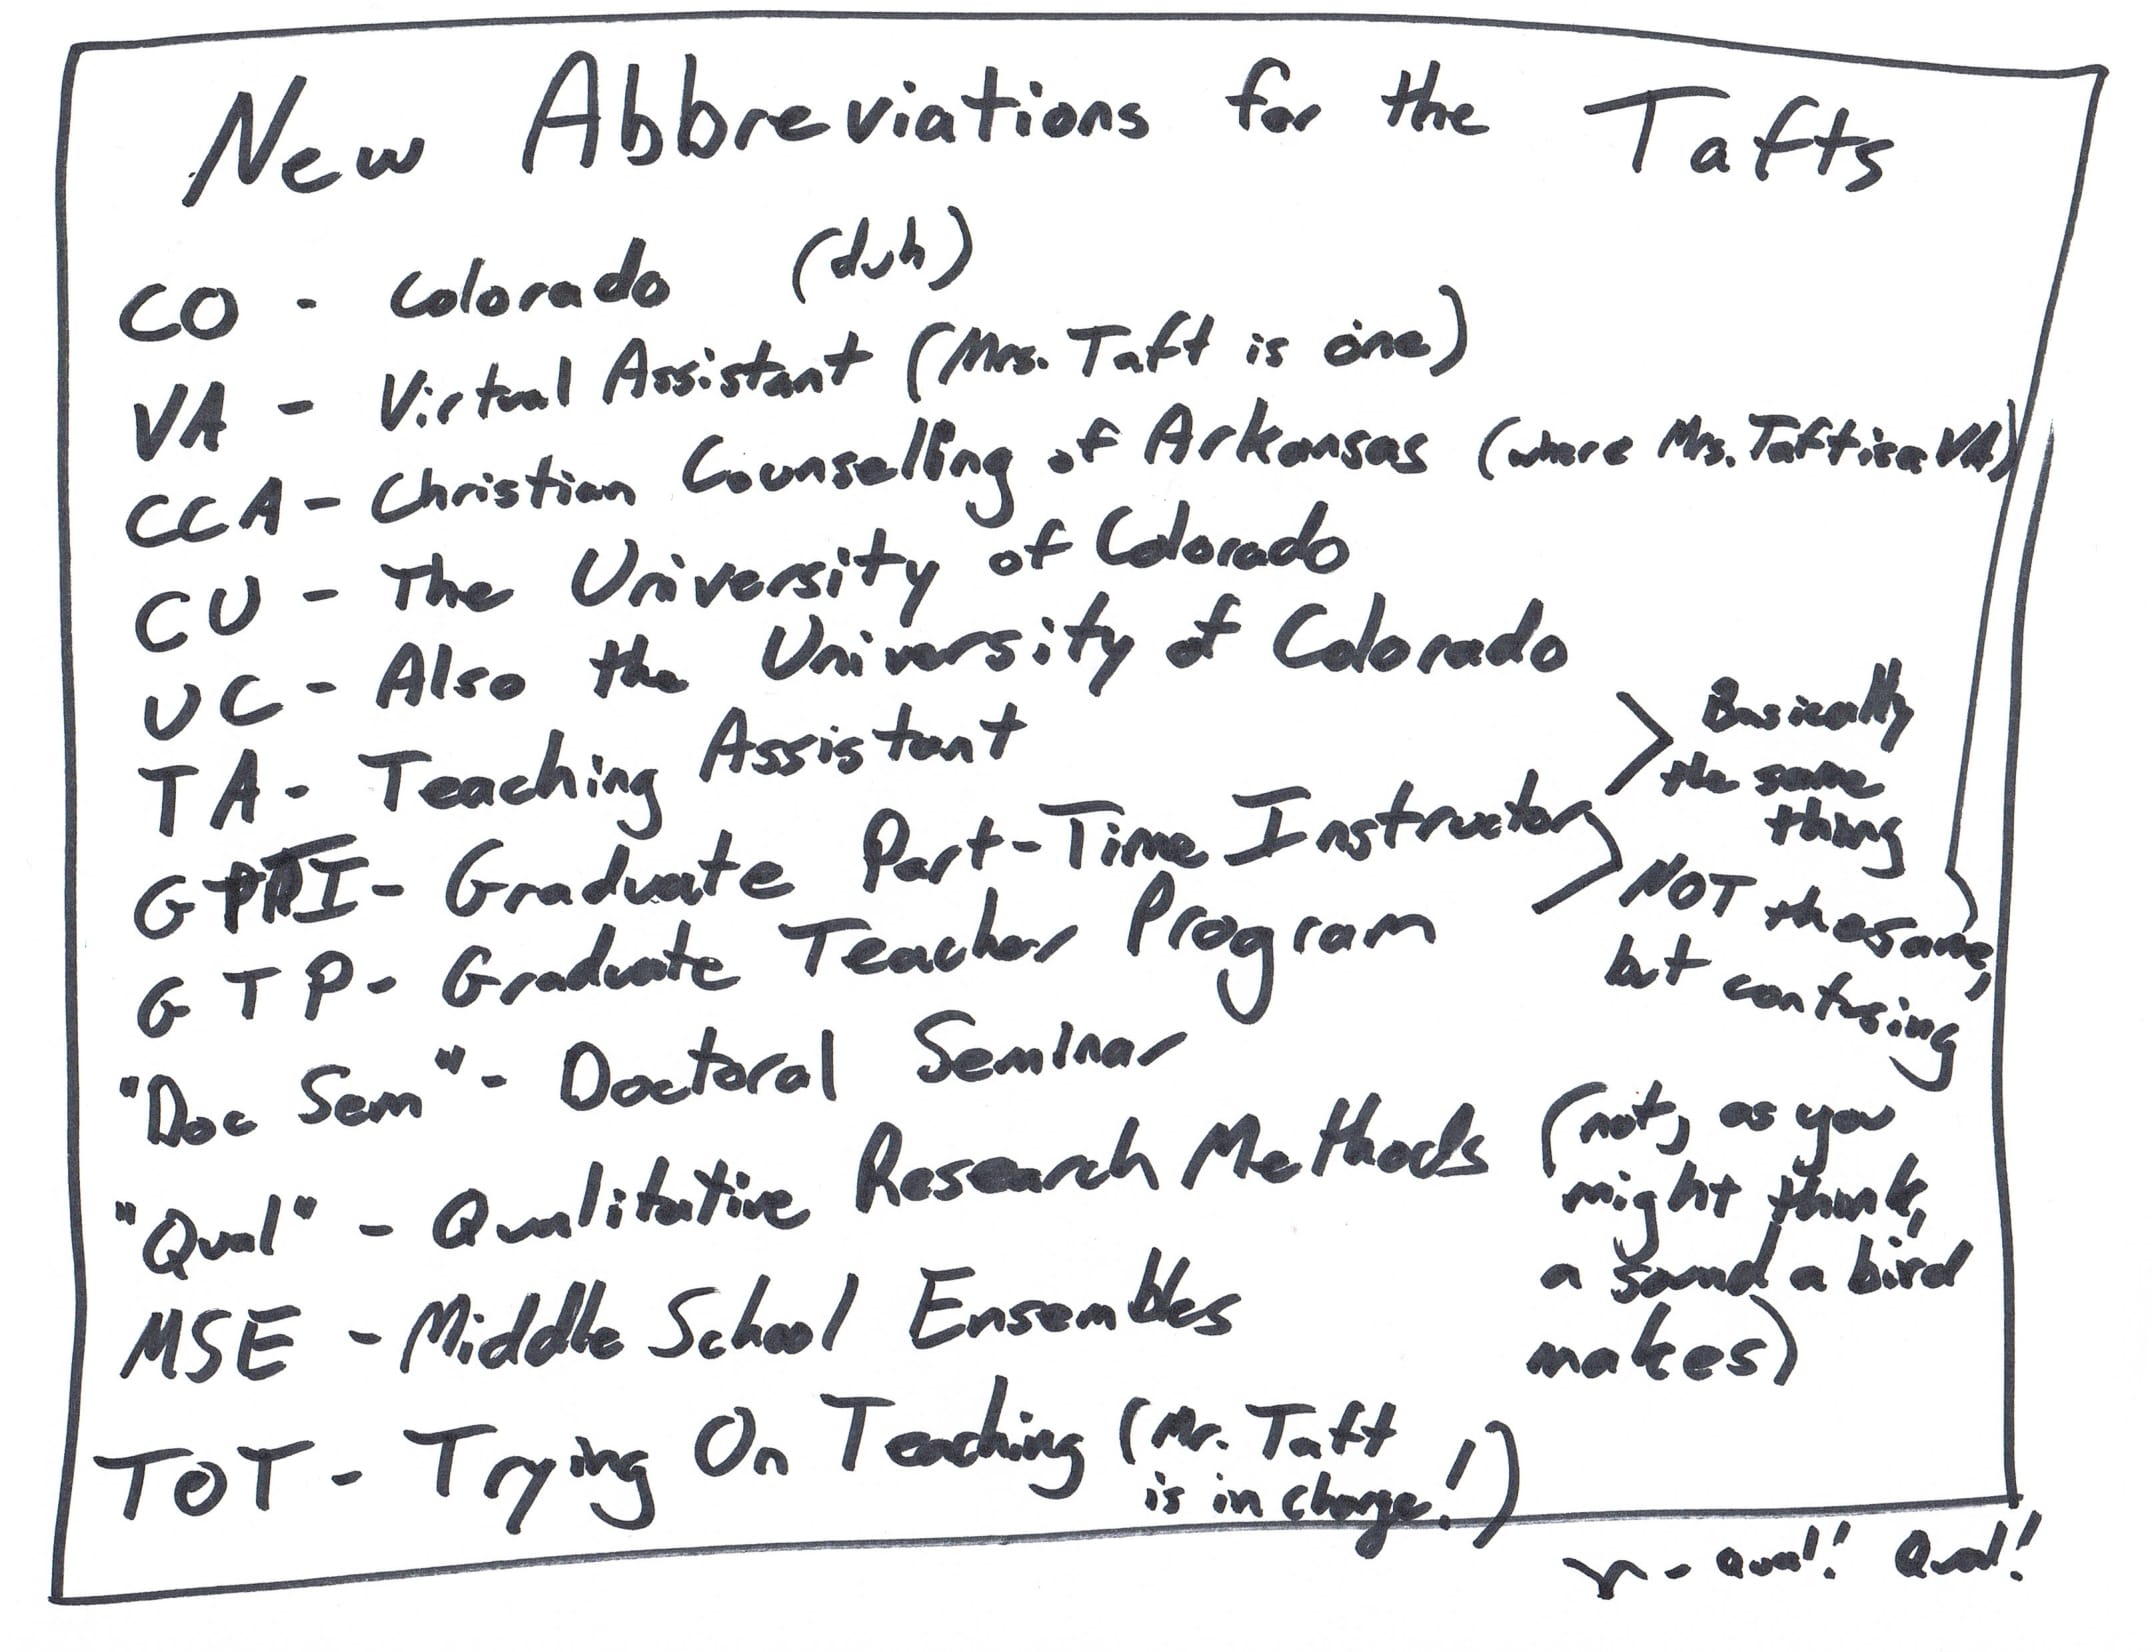 New Abbreviations for the Tafts
CO - Colorado (duh)
VA - Virtual Assistant (Mrs. Taft is one)
CCA - Christian Counselling of Arkansas (where Mrs. Taft is a VA)
CU - The University of Colorado
UC - Also the University of Colorado
TA - Teaching Assistant
GPTI - Graduate Part-Time Instructor
Basically
the same
thing
GTP - Graduate Teacher Program
NOT the same,
but confusing
"Doc Sem" - Doctoral Seminar
"Qual" - Qualitative Research Methods
(not, as you
might think,
a sound a bird
makes)
MSE - Middle School Ensembles
TOT - Trying On Teaching (Mr. Taft
is in charge!)
- Qual! Qual!